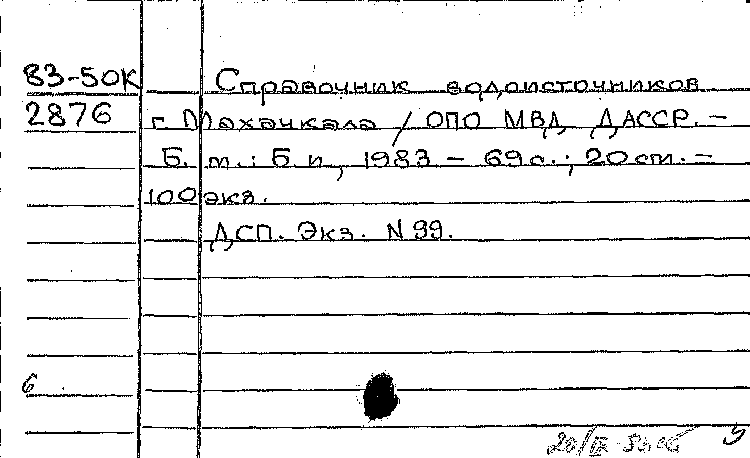 83-50К Справочник водоисточников
2876 г. Махачкала / ОПО МВД ДАССР. –
Б. м. : Б. и, 1983 – 69 с. ; 20 см. –
100 экз.
ДСП. Экз. N 99.
6